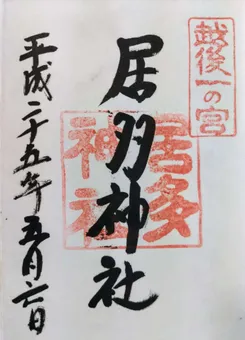 越後一の宮
居多神社
居多
神社
平成二十五年五月六日